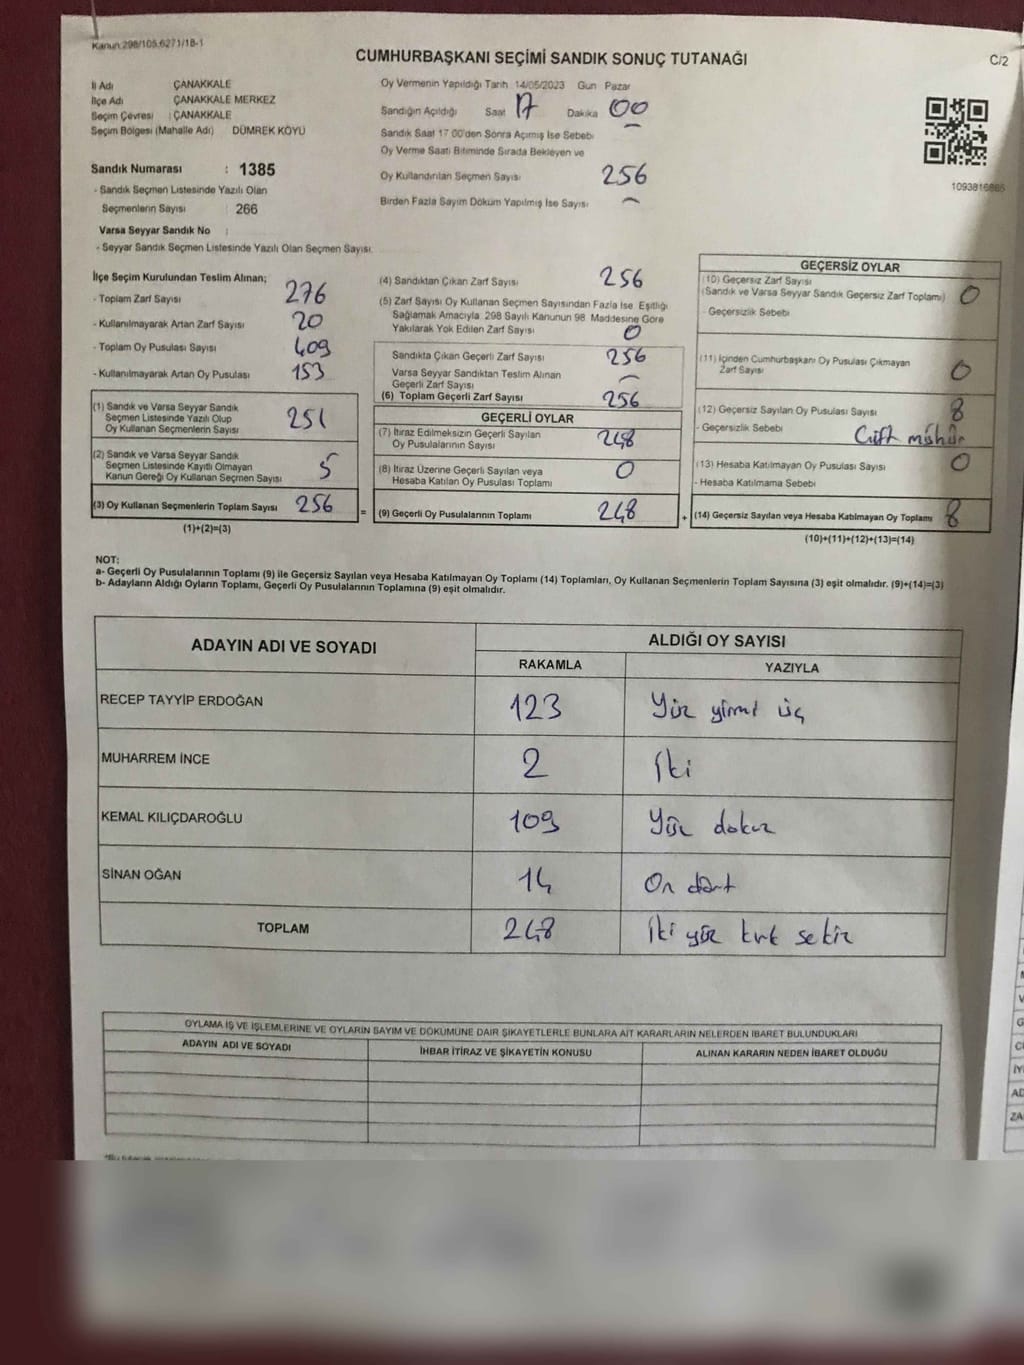 Kanun 298/105,6271/18-1
CUMHURBAŞKANI SEÇİMİ SANDIK SONUÇ TUTANAĞI
C/2
İl Adı ÇANAKKALE
İlçe Adı ÇANAKKALE MERKEZ
Seçim Çevresi : ÇANAKKALE
Seçim Bölgesi (Mahalle Adı) DÜMREK KÖYÜ
Oy Vermenin Yapıldığı Tarih 14/05/2023 Gün Pazar
Sandığın Açıldığı Saat 17 Dakika 00
Sandık Saat 17 00'den Sonra Açılmış İse Sebebi
Oy Verme Saati Bitiminde Sırada Bekleyen ve
Oy Kullandırılan Seçmen Sayısı 256
Birden Fazla Sayım Döküm Yapılmış İse Sayısı
1093816865
Sandık Numarası : 1385
- Sandık Seçmen Listesinde Yazılı Olan
Seçmenlerin Sayısı : 266
Varsa Seyyar Sandık No :
- Seyyar Sandık Seçmen Listesinde Yazılı Olan Seçmen Sayısı:
İlçe Seçim Kurulundan Teslim Alınan;
- Toplam Zarf Sayısı 276
- Kullanılmayarak Artan Zarf Sayısı 20
- Toplam Oy Pusulası Sayısı 409
- Kullanılmayarak Artan Oy Pusulası 153
(1) Sandık ve Varsa Seyyar Sandık
Seçmen Listesinde Yazılı Olup
Oy Kullanan Seçmenlerin Sayısı 251
(2) Sandık ve Varsa Seyyar Sandık
Seçmen Listesinde Kayıtlı Olmayan
Kanun Gereği Oy Kullanan Seçmen Sayısı 5
(3) Oy Kullanan Seçmenlerin Toplam Sayısı 256
(1)+(2)=(3)
(4) Sandıktan Çıkan Zarf Sayısı 256
(5) Zarf Sayısı Oy Kullanan Seçmen Sayısından Fazla İse Eşitliği
Sağlamak Amacıyla 298 Sayılı Kanunun 98 Maddesine Göre
Yakılarak Yok Edilen Zarf Sayısı 0
Sandıkta Çıkan Geçerli Zarf Sayısı 256
Varsa Seyyar Sandıktan Teslim Alınan
Geçerli Zarf Sayısı
(6) Toplam Geçerli Zarf Sayısı 256
GEÇERLİ OYLAR
(7) İtiraz Edilmeksizin Geçerli Sayılan
Oy Pusulalarının Sayısı 248
(8) İtiraz Üzerine Geçerli Sayılan veya
Hesaba Katılan Oy Pusulası Toplamı 0
= (9) Geçerli Oy Pusulalarının Toplamı 248
GEÇERSİZ OYLAR
(10) Geçersiz Zarf Sayısı
(Sandık ve Varsa Seyyar Sandık Geçersiz Zarf Toplamı) 0
- Geçersizlik Sebebi
(11) İçinden Cumhurbaşkanı Oy Pusulası Çıkmayan
Zarf Sayısı 0
(12) Geçersiz Sayılan Oy Pusulası Sayısı 8
- Geçersizlik Sebebi Çift mühür
(13) Hesaba Katılmayan Oy Pusulası Sayısı 0
- Hesaba Katılmama Sebebi
+ (14) Geçersiz Sayılan veya Hesaba Katılmayan Oy Toplamı 8
(10)+(11)+(12)+(13)=(14)
NOT:
a- Geçerli Oy Pusulalarının Toplamı (9) ile Geçersiz Sayılan veya Hesaba Katılmayan Oy Toplamı (14) Toplamları, Oy Kullanan Seçmenlerin Toplam Sayısına (3) eşit olmalıdır. (9)+(14)=(3)
b- Adayların Aldığı Oyların Toplamı, Geçerli Oy Pusulalarının Toplamına (9) eşit olmalıdır.
ADAYIN ADI VE SOYADI ALDIĞI OY SAYISI
RAKAMLA YAZIYLA
RECEP TAYYİP ERDOĞAN 123 Yüz yirmi üç
MUHARREM İNCE 2 İki
KEMAL KILIÇDAROĞLU 109 Yüz dokuz
SİNAN OĞAN 14 On dört
TOPLAM 248 İki yüz kırk sekiz
OYLAMA İŞ VE İŞLEMLERİNE VE OYLARIN SAYIM VE DÖKÜMÜNE DAİR ŞİKAYETLERLE BUNLARA AİT KARARLARIN NELERDEN İBARET BULUNDUKLARI
ADAYIN ADI VE SOYADI İHBAR İTİRAZ VE ŞİKAYETİN KONUSU ALINAN KARARIN NEDEN İBARET OLDUĞU